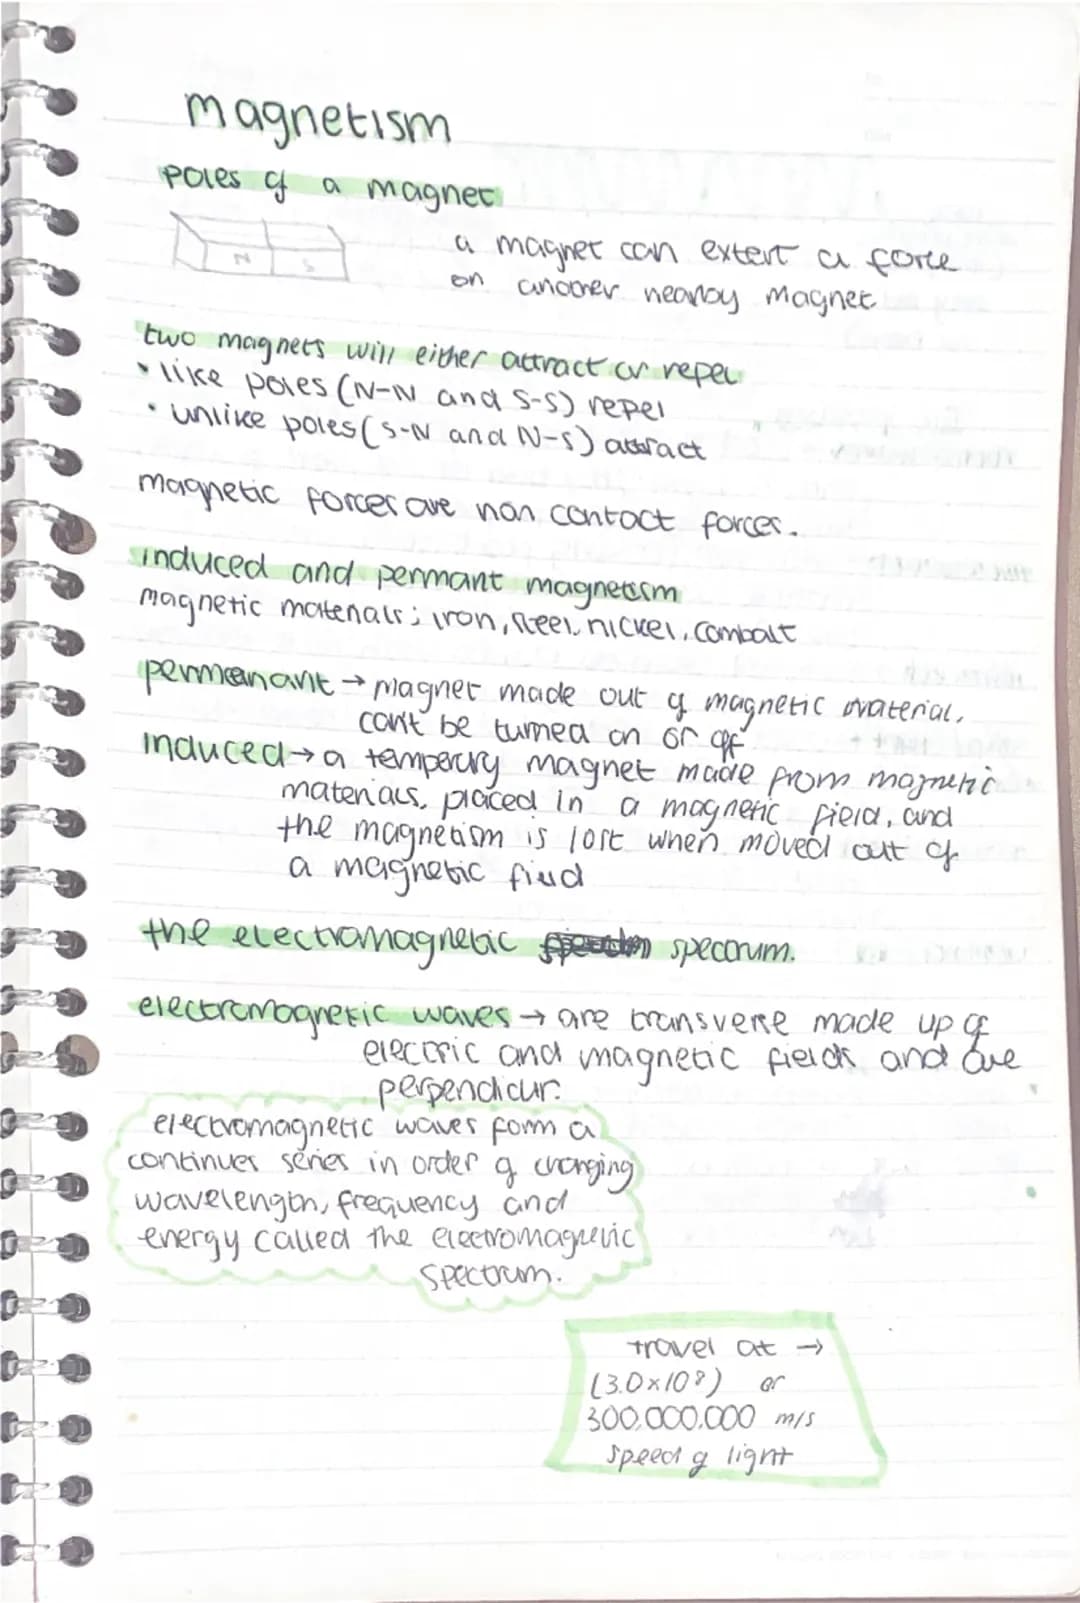 magnetism
poles of a magnet
N S
a magnet can extert a force
on another nearby magnet
two magnets will either attract or repel
• like poles (N-N and S-S) repel
• unlike poles (S-N and N-S) attract
magnetic forces are non contact forces.
induced and permant magnetism
magnetic materials; iron, steel, nickel, combalt
permenant → magnet made out of magnetic material,
can't be turned on or off
induced → a temperary magnet made from magnetic
materials, placed in a magnetic field, and
the magnetism is lost when moved out of
a magnetic field
the electromagnetic spectrum.
electromagnetic waves → are transverse made up of
electric and magnetic fields and are
perpendicur.
electromagnetic waves form a
continues series in order of changing
wavelength, frequency and
energy called the electromagnetic
spectrum.
travel at →
(3.0×10⁸) or
300,000,000 m/s
speed of light